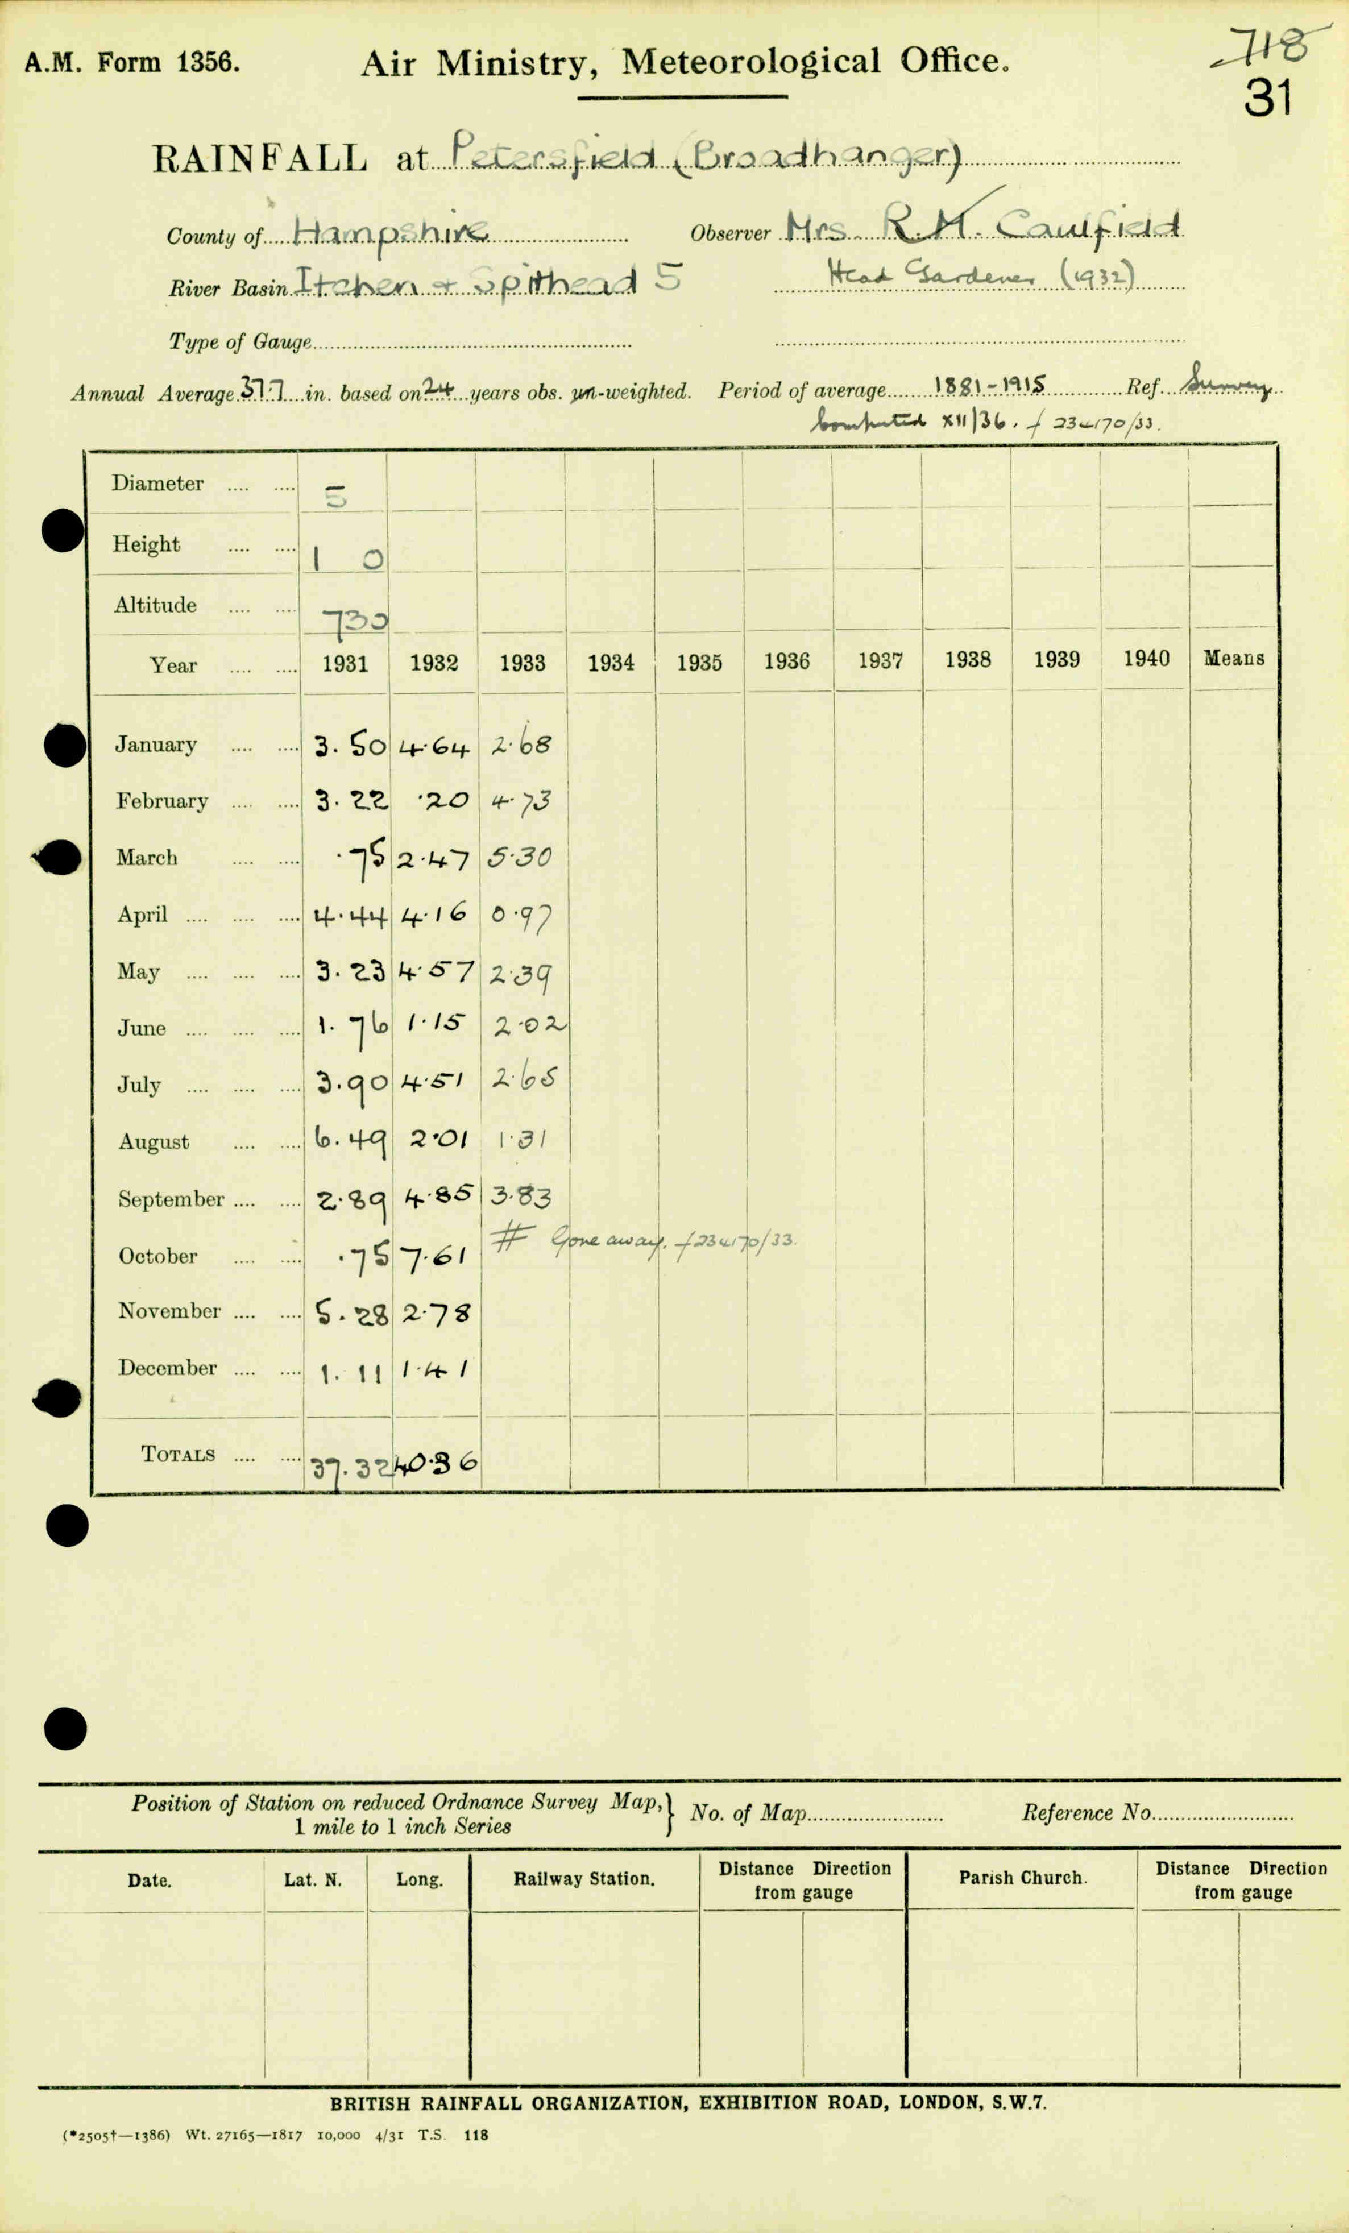 A.M. Form 1356.
Air Ministry, Meteorological Office.
718
31
RAINFALL at Petersfield (Broadhanger)
County of Hampshire Observer Mrs R. H. Caulfield
River Basin Itchen + Spithead 5 Head Gardener (1932)
Type of Gauge
Annual Average 37.7 in. based on 24 years obs. un-weighted. Period of average 1881-1915 Ref. Survey
Computed XII/36. f 234170/33.
Diameter 5
Height 1 0
Altitude 730
Year 1931 1932 1933 1934 1935 1936 1937 1938 1939 1940 Means
January 3.50 4.64 2.68
February 3.22 .20 4.73
March .75 2.47 5.30
April 4.44 4.16 0.97
May 3.23 4.57 2.39
June 1.76 1.15 2.02
July 3.90 4.51 2.65
August 6.49 2.01 1.31
September 2.89 4.85 3.83
October .75 7.61 # Gone away. f 234170/33.
November 5.28 2.78
December 1.11 1.41
TOTALS 37.32 40.36
Position of Station on reduced Ordnance Survey Map, } No. of Map Reference No.
1 mile to 1 inch Series
Date. Lat. N. Long. Railway Station. Distance Direction from gauge Parish Church. Distance Direction from gauge
BRITISH RAINFALL ORGANIZATION, EXHIBITION ROAD, LONDON, S.W.7.
(*2505†—1386) Wt. 27165—1817 10,000 4/31 T.S. 118